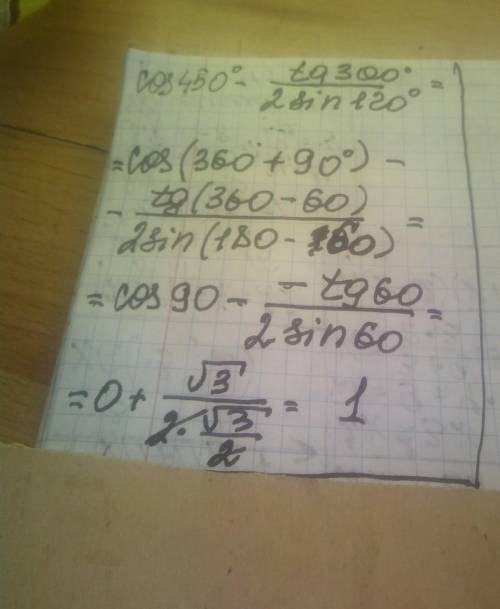 cos450° - tg300° / 2sin120° =
= cos(360° + 90°) -
- tg(360 - 60) / 2sin(180 - 60) =
= cos90 - -tg60 / 2sin60 =
= 0 + √3 / 2·√3/2 = 1